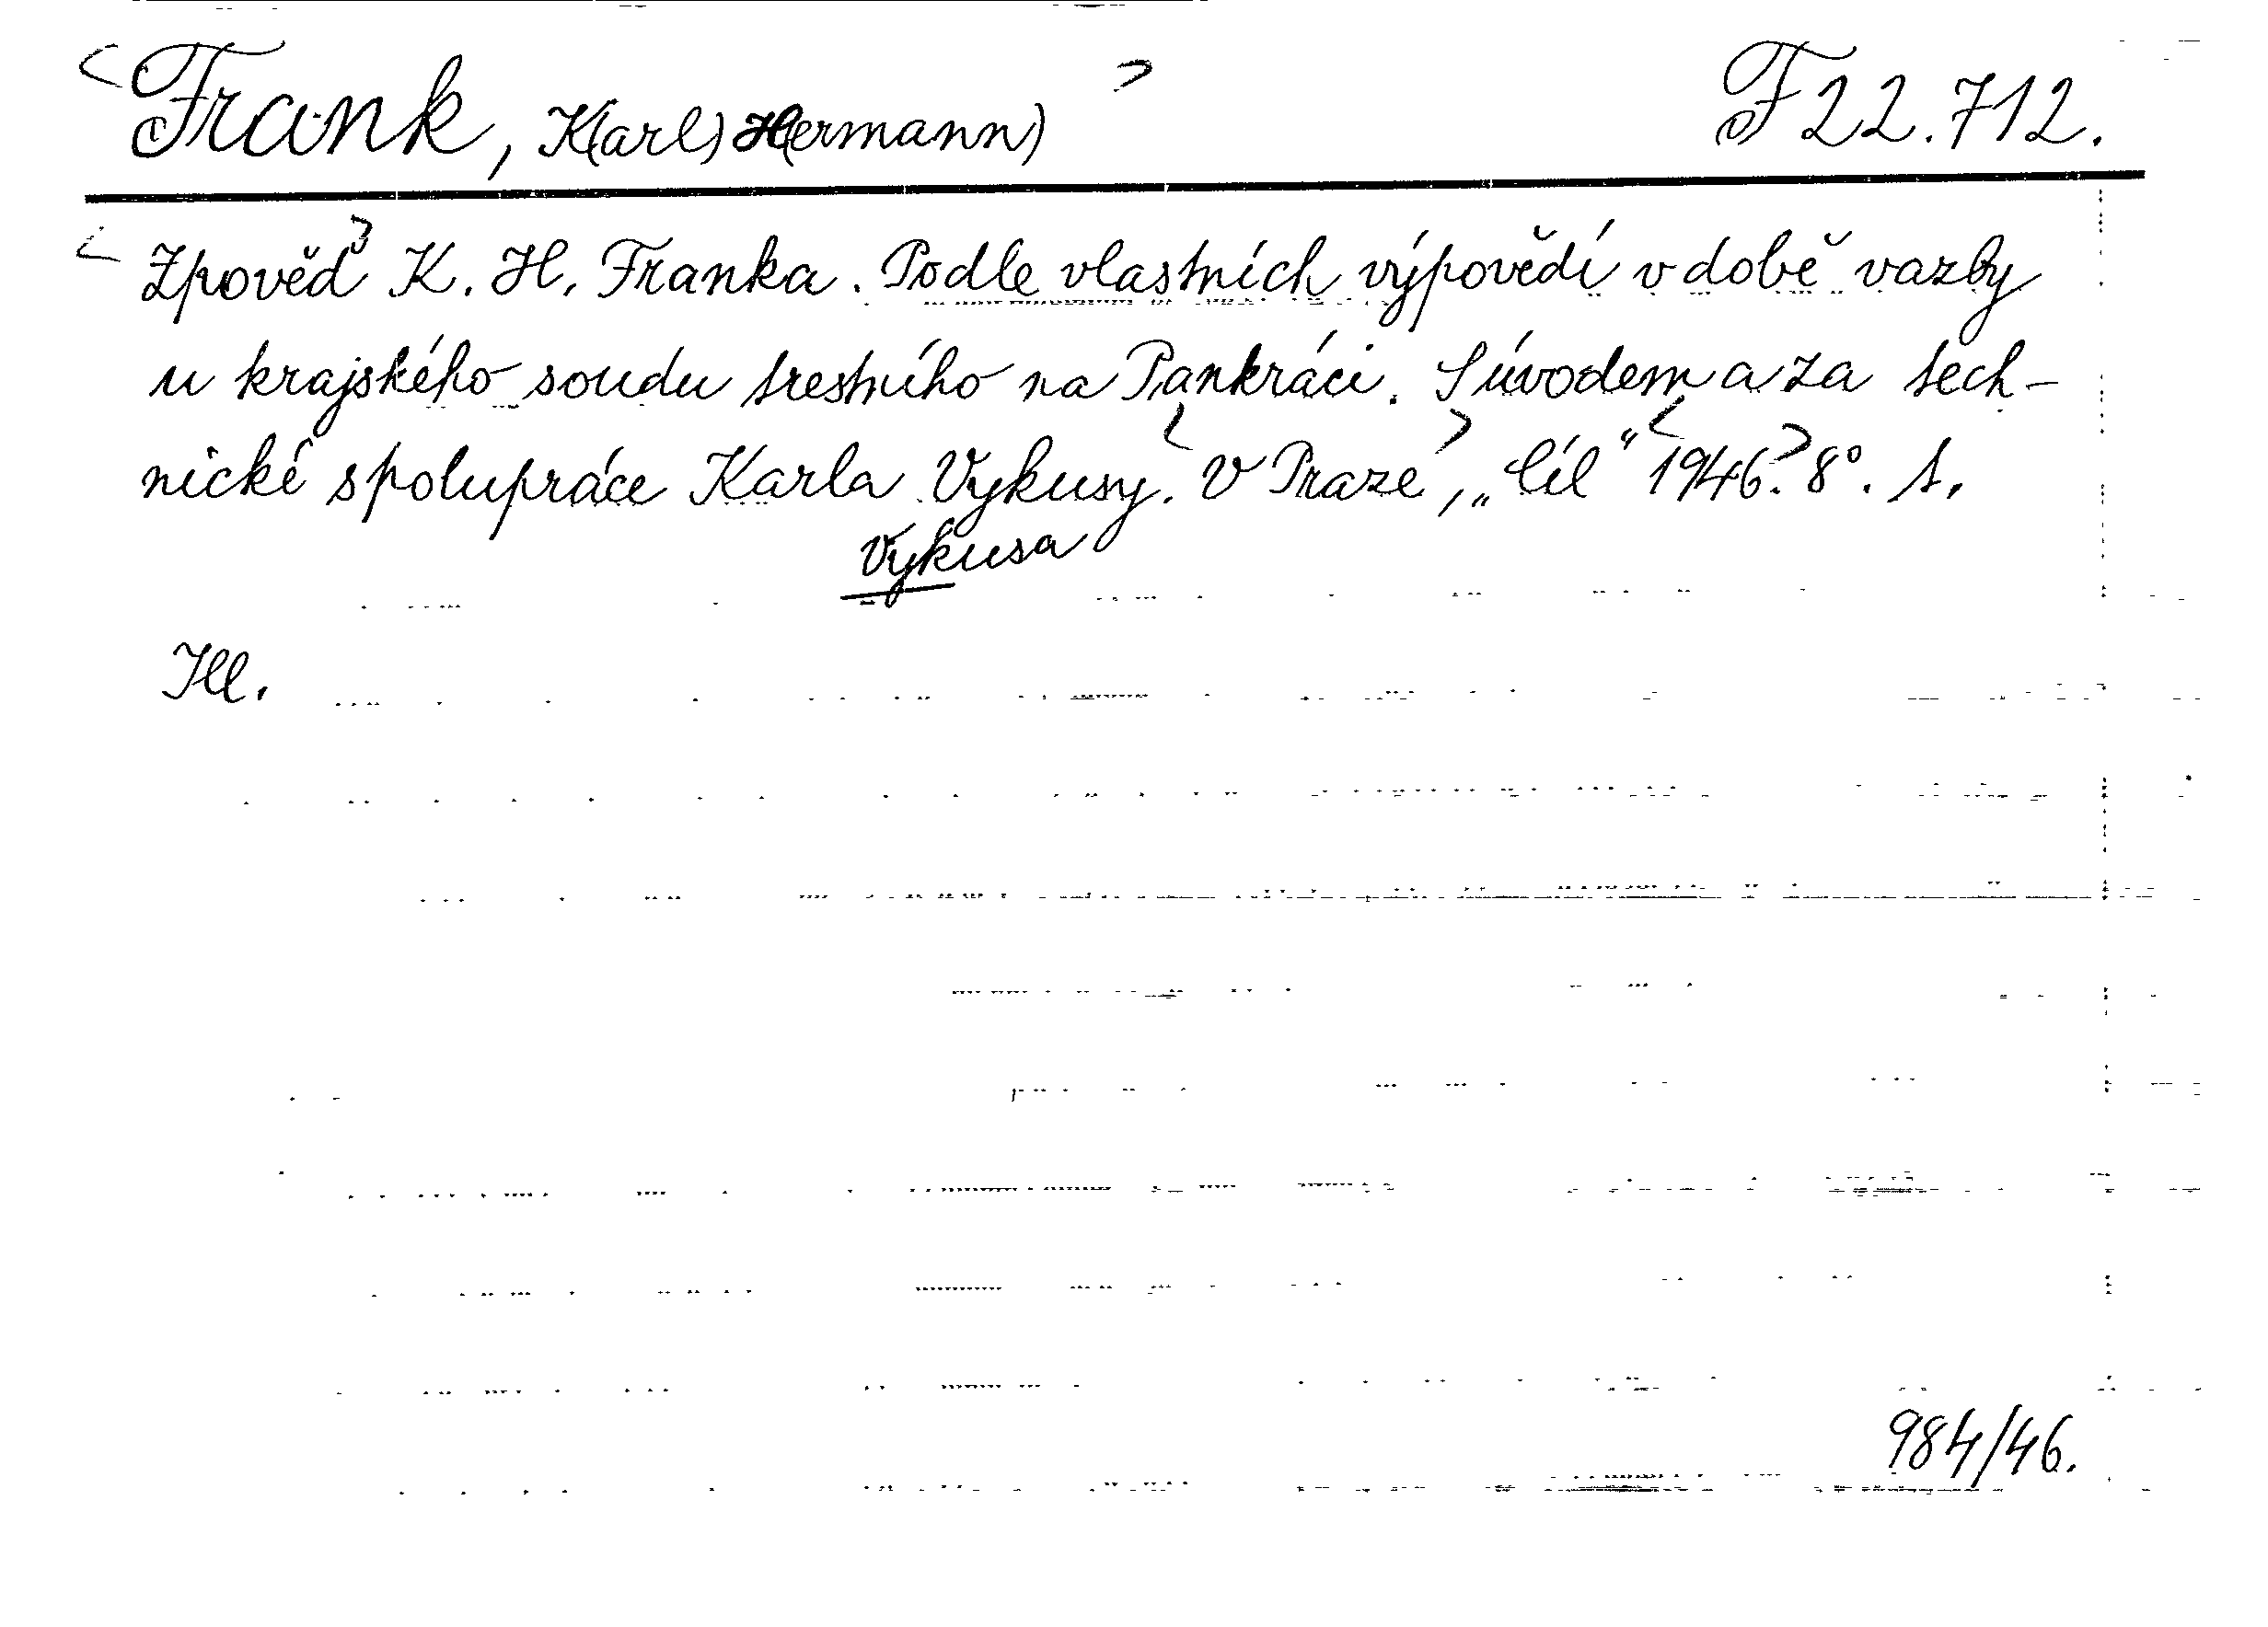 <Frank, K(arl) H(ermann)> F 22.712.
<Zpověď> K. H. Franka. Podle vlastních výpovědí v době vazby
u krajského soudu trestního na Pankráci. S úvodem a za tech-
nické spolupráce Karla Vykusy. <V Praze>, „Cíl“ <1946.> 8°. s.
Vykusa
Ill.
984/46.